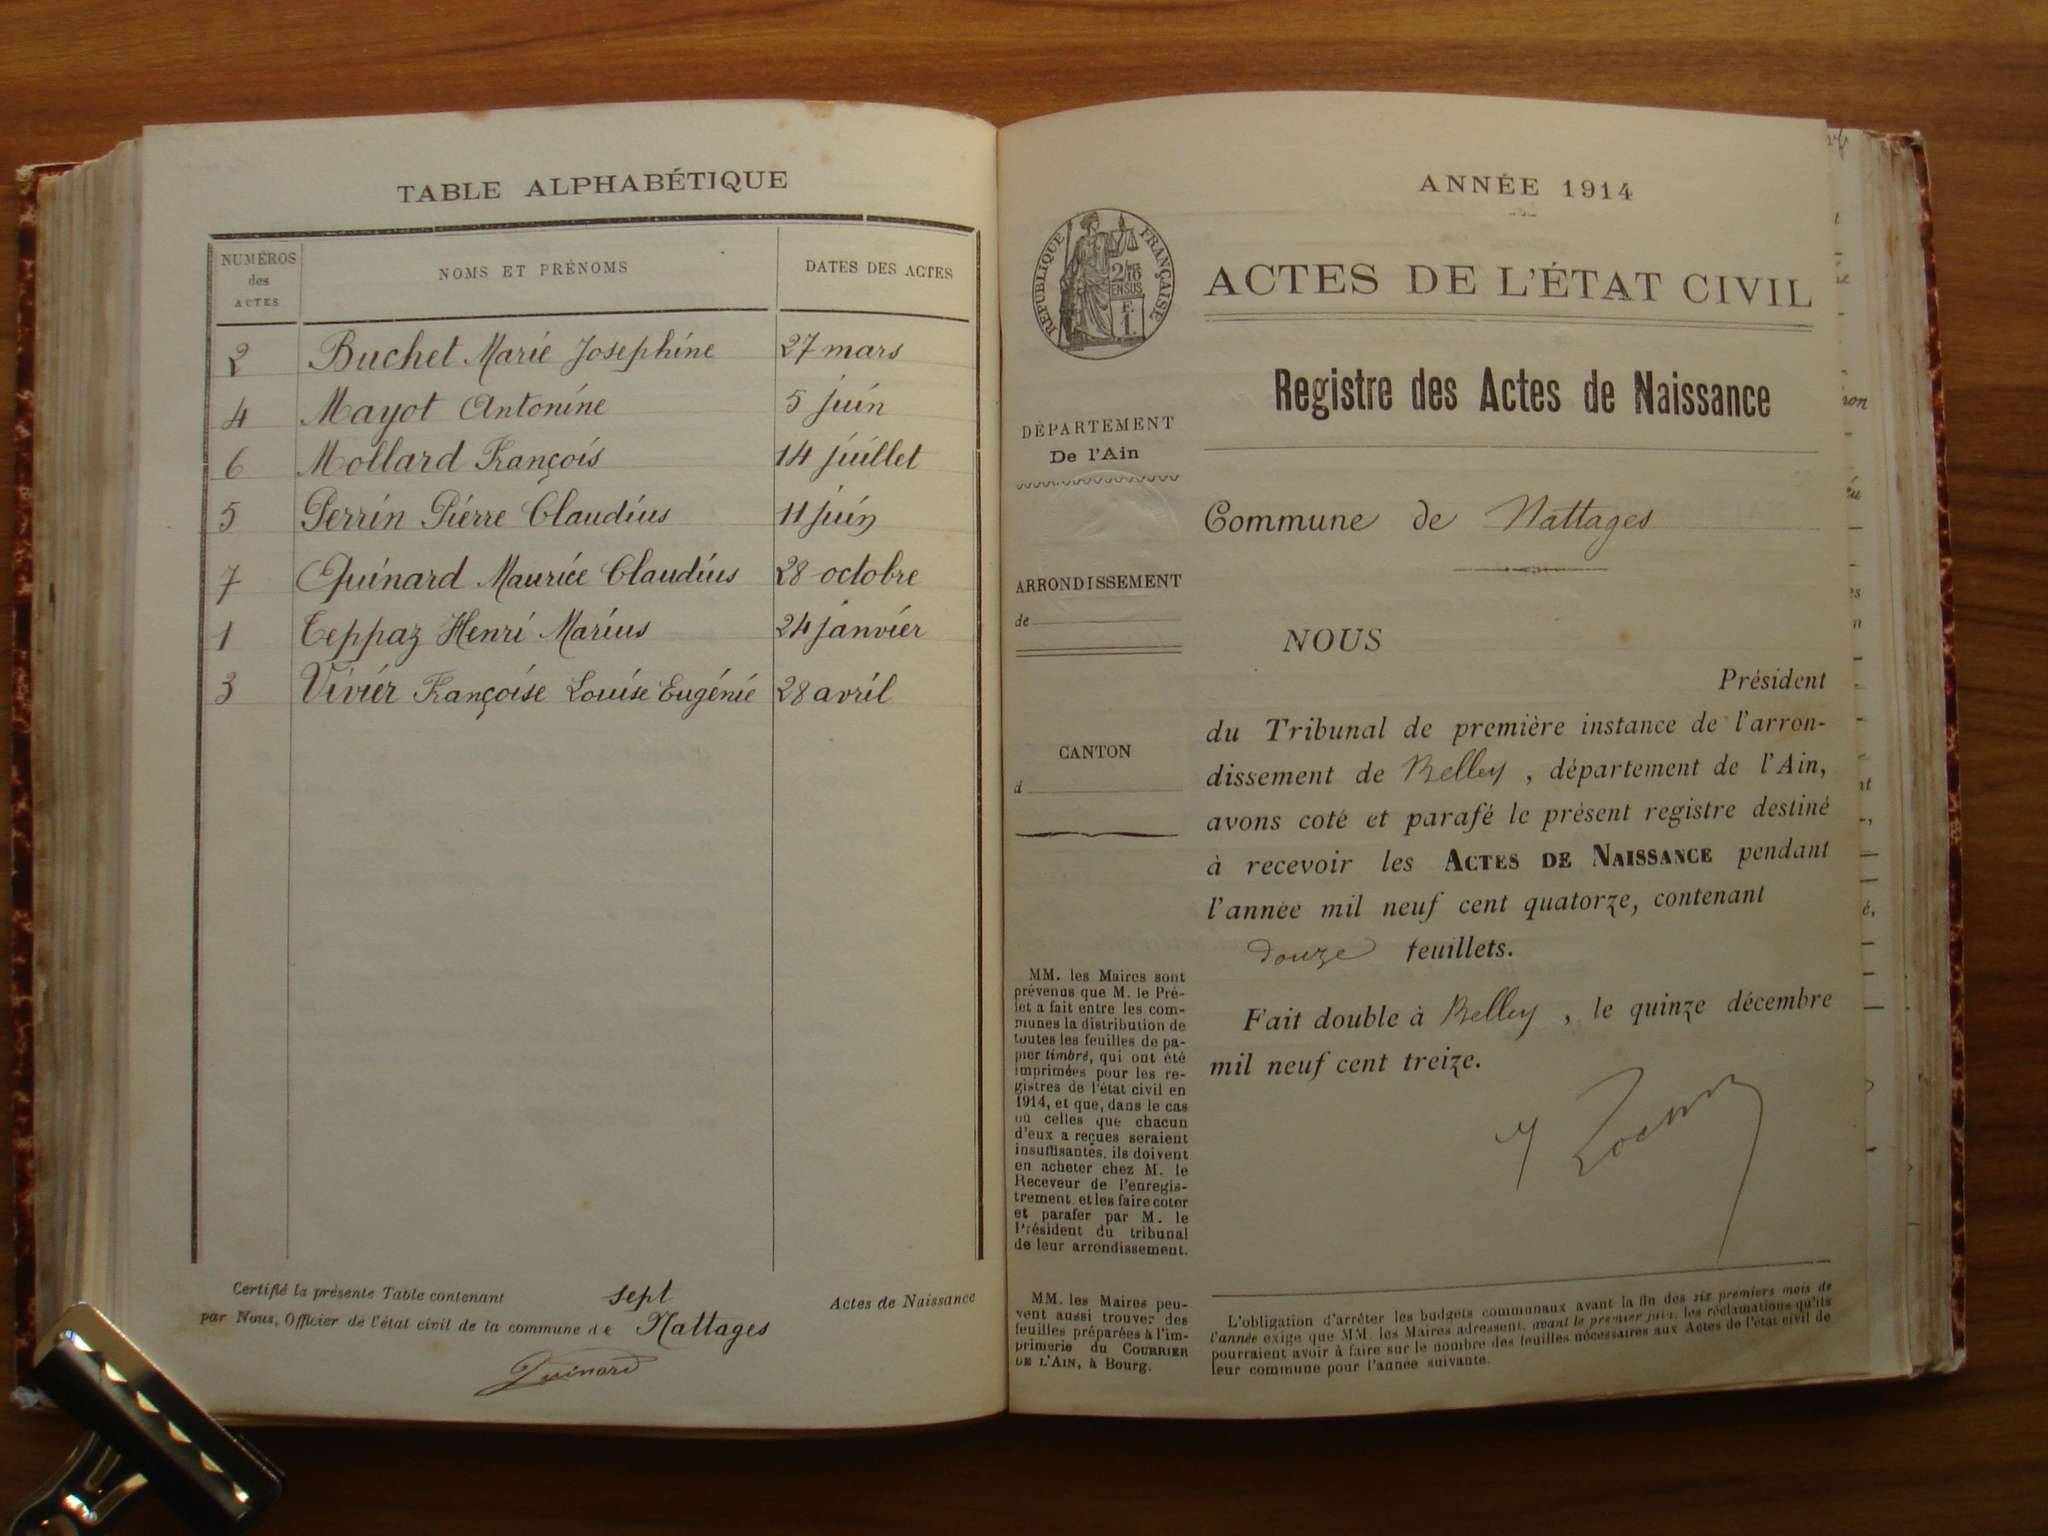 TABLE ALPHABÉTIQUE
NUMÉROS des ACTES NOMS ET PRÉNOMS DATES DES ACTES
2 Buchet Marie Josephine 27 mars
4 Mayot Antonine 5 juin
6 Mollard François 14 juillet
5 Perrin Pierre Claudius 11 juin
7 Quinard Maurice Claudius 28 octobre
1 Teppaz Henri Marius 24 janvier
3 Vivier Françoise Louise Eugénie 28 avril
Certifié la présente Table contenant sept Actes de Naissance
par Nous, Officier de l'état civil de la commune de Nattages
Quinard
ANNÉE 1914
RÉPUBLIQUE FRANÇAISE
ACTES DE L'ÉTAT CIVIL
Registre des Actes de Naissance
DÉPARTEMENT
De l'Ain
Commune de Nattages
ARRONDISSEMENT
de
CANTON
d
NOUS
Président
du Tribunal de première instance de l'arron-
dissement de Belley, département de l'Ain,
avons coté et parafé le présent registre destiné
à recevoir les ACTES DE NAISSANCE pendant
l'année mil neuf cent quatorze, contenant
douze feuillets.
Fait double à Belley, le quinze décembre
mil neuf cent treize.
MM. les Maires sont
prévenus que M. le Pré-
fet a fait entre les com-
munes la distribution de
toutes les feuilles de pa-
pier timbré, qui ont été
imprimées pour les re-
gistres de l'état civil en
1914, et que, dans le cas
où celles que chacun
d'eux a reçues seraient
insuffisantes, ils doivent
en acheter chez M. le
Receveur de l'enregis-
trement, et les faire coter
et parafer par M. le
Président du tribunal
de leur arrondissement.
MM. les Maires peu-
vent aussi trouver des
feuilles préparées à l'im-
primerie du COURRIER
DE L'AIN, à Bourg.
L'obligation d'arrêter les budgets communaux avant la fin des six premiers mois de
l'année exige que MM. les Maires adressent, avant le premier juin, les réclamations qu'ils
pourraient avoir à faire sur le nombre des feuilles nécessaires aux Actes de l'état civil de
leur commune pour l'année suivante.